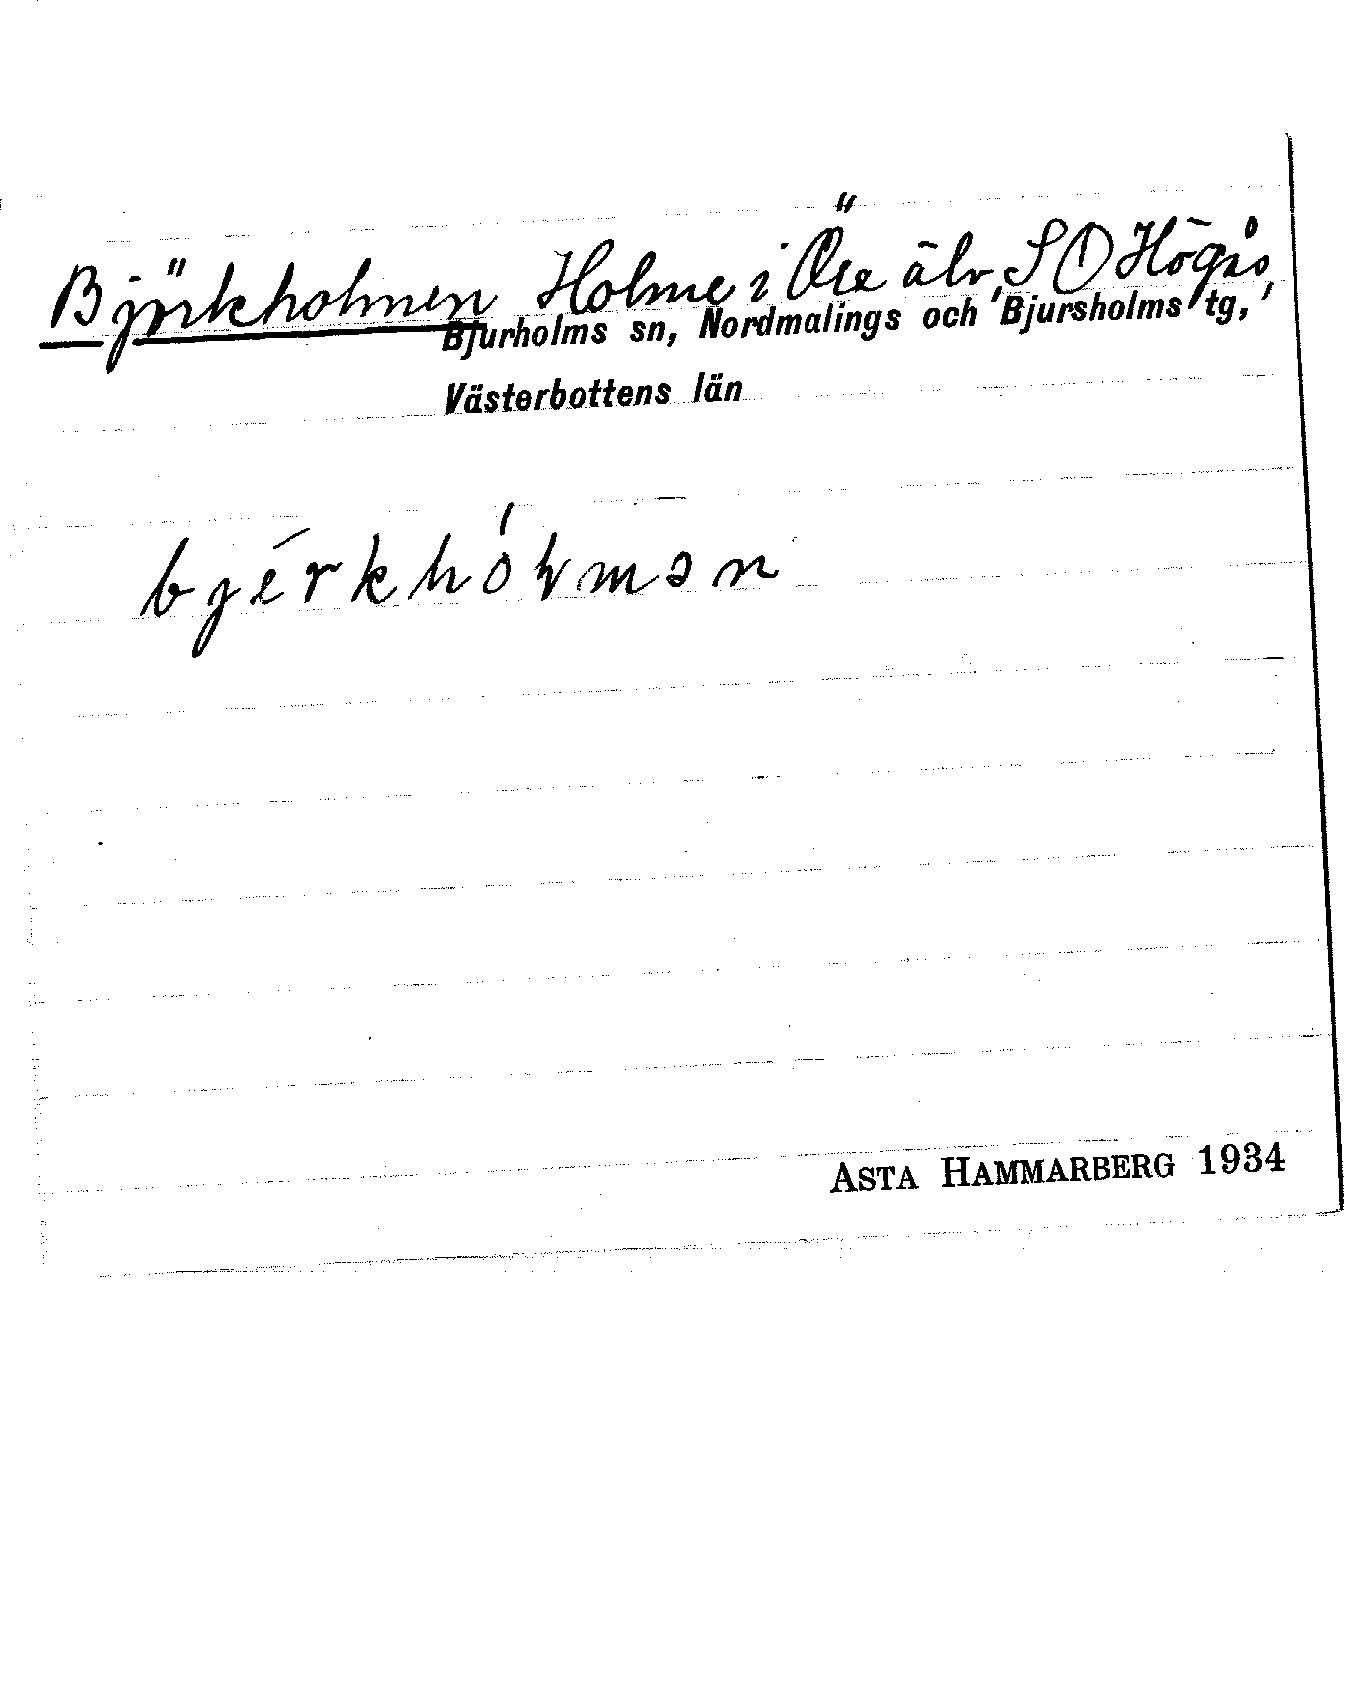 Björkholmen Holme i Öre älv, S O Högås,
Bjurholms sn, Nordmalings och Bjursholms tg,
Västerbottens län
bjérkhóɫmən
ASTA HAMMARBERG 1934